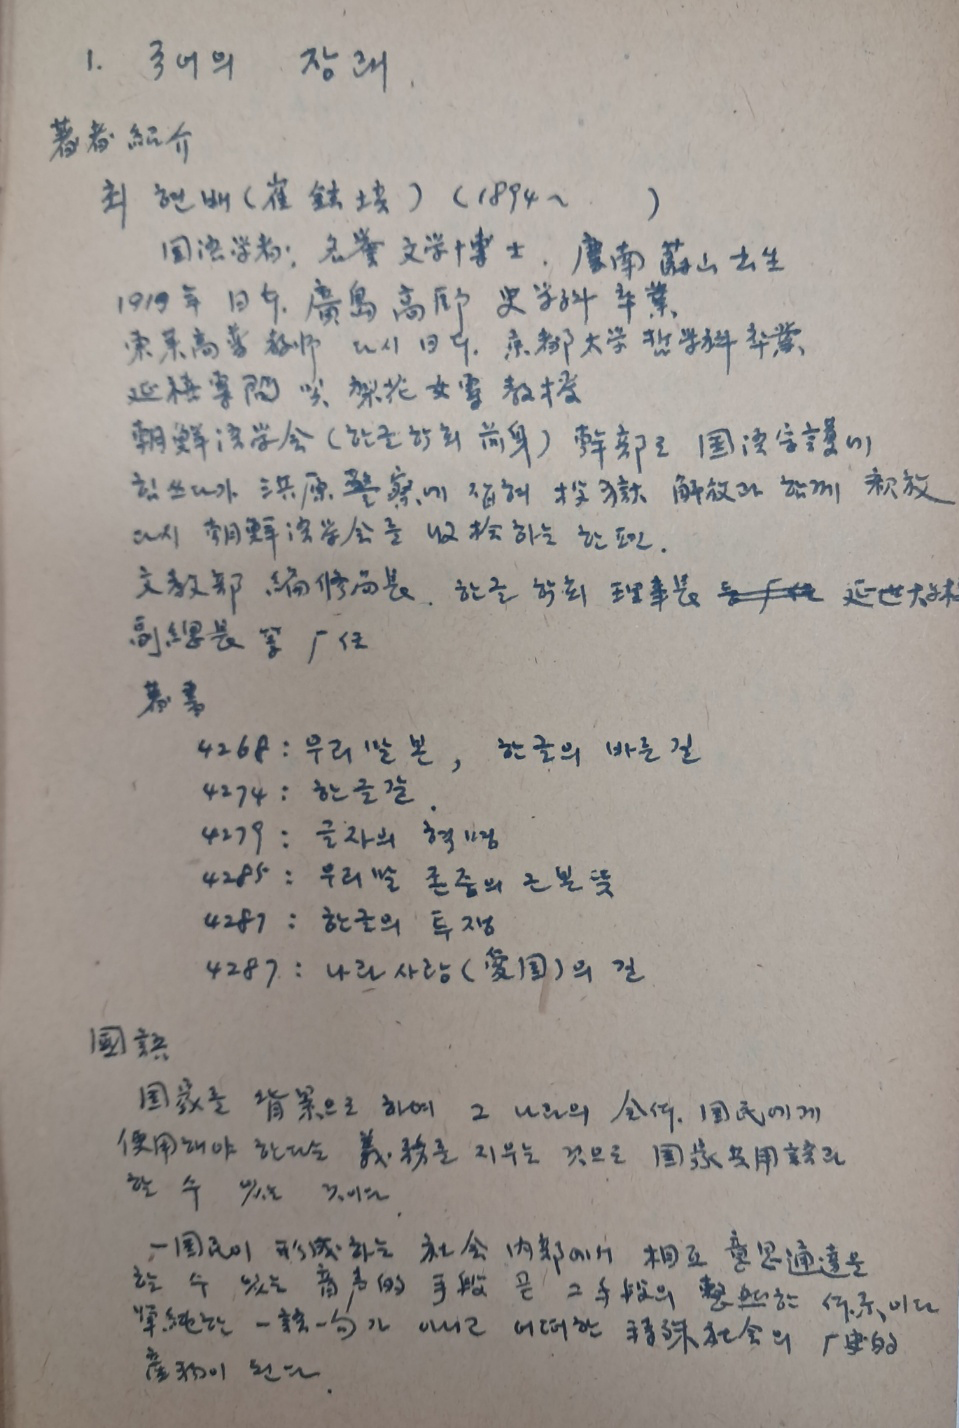 1. 국어의 장래.
著者紹介
최 현배 (崔鉉培) (1894~ )
国語学者; 名誉 文学博士. 慶南 蔚山 出生
1919年 日本. 廣島 高師 史学科 卒業.
東萊高普 敎師 다시 日本. 京都大学 哲学科 卒業.
延禧專門 및 梨花女專 敎授
朝鮮語学会 (한글학회 前身) 幹部로 国語守護에
힘쓰다가 洪原警察에 잡혀 投獄 解放과 함께 釈放
다시 朝鮮語学会를 收拾하는 한편.
文敎部 編修局長. 한글 학회 理事長 延世大学校
副總長 等 歷任
著書
4268 : 우리 말 본 , 한글의 바른 길
4274 : 한글갈.
4279 : 글자의 혁명
4285 : 우리말 존중의 근본 뜻
4287 : 한글의 투쟁
4287 : 나라 사랑 (愛国)의 길
國語
国家를 背景으로 하여 그 나라의 全体. 国民에게
使用해야 한다는 義務를 지우는 것으로 国家共用語라
할 수 있는 것이다.
一国民이 形成하는 社会 内部에서 相互 意思通達을
할 수 있는 音声的 手段 곧 그 手段의 整然한 体系이다
單純한 一語一句가 아니고 어떠한 特殊社会의 歷史的
産物이 된다.